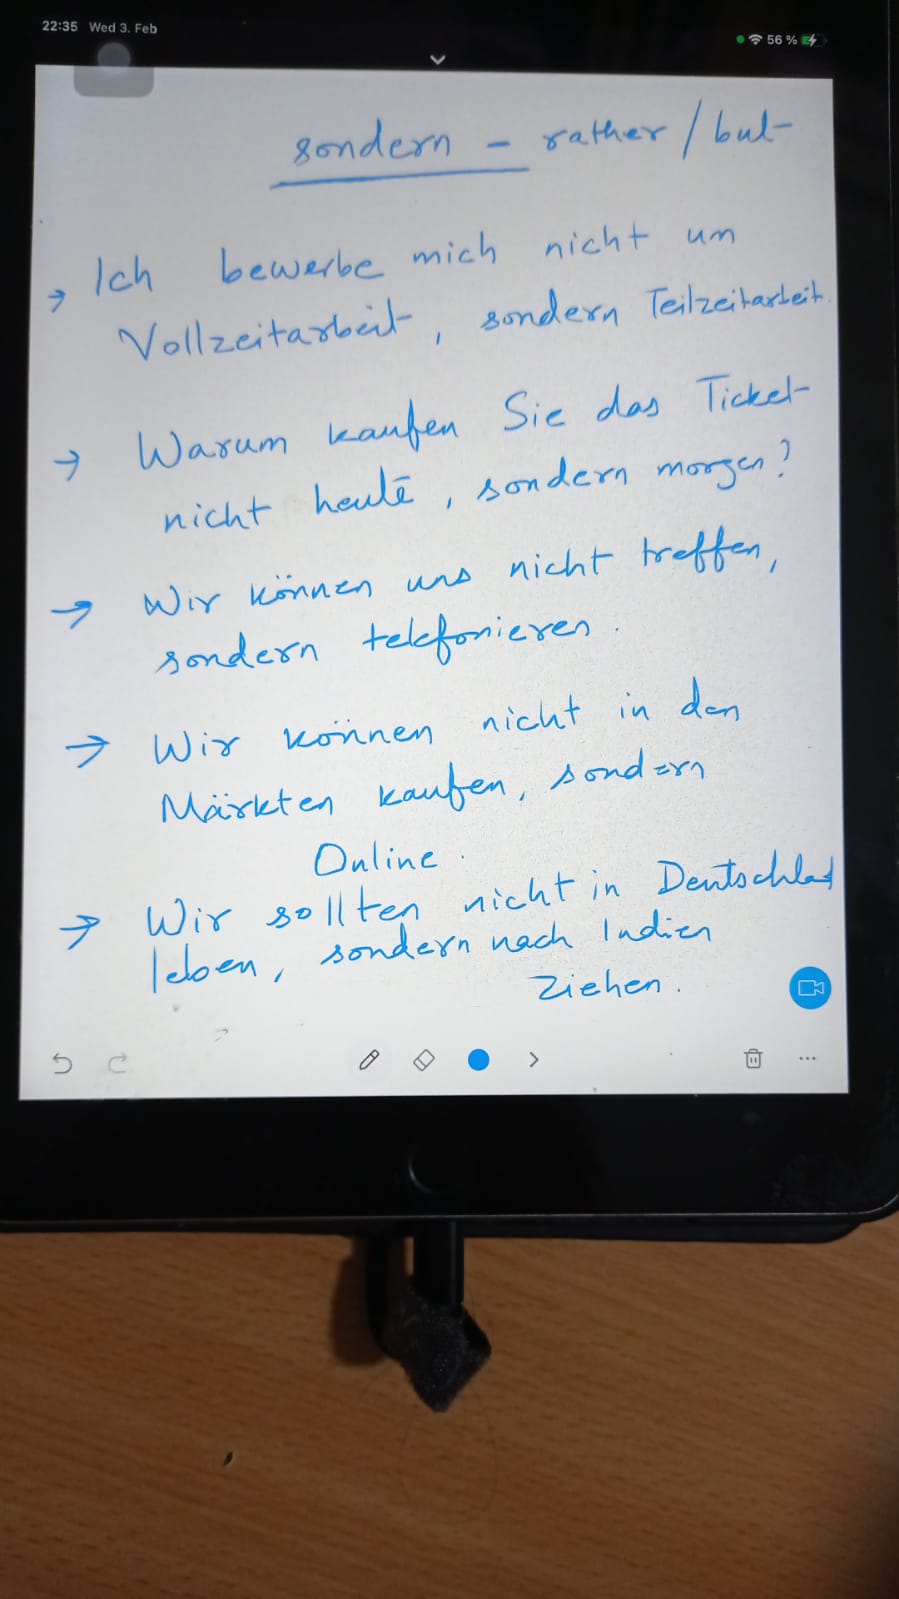 22:35 Wed 3. Feb
56 %
sondern - rather / but
→ Ich bewerbe mich nicht um
Vollzeitarbeit, sondern Teilzeitarbeit.
→ Warum kaufen Sie das Ticket
nicht heute, sondern morgen?
→ Wir können uns nicht treffen,
sondern telefonieren.
→ Wir können nicht in den
Märkten kaufen, sondern
Online.
→ Wir sollten nicht in Deutschlad
leben, sondern nach Indien
ziehen.